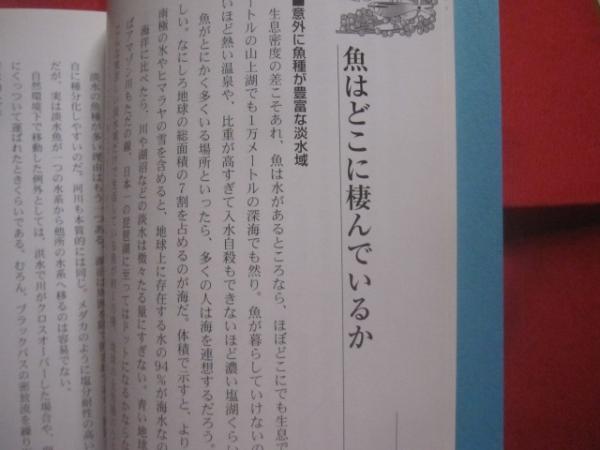 魚はどこに棲んでいるか
■意外に魚種が豊富な淡水域
生息密度の差こそあれ、魚は水があるところなら、ほぼどこにでも生息で
ートルの山上湖でも1万メートルの深海でも然り。魚が暮らしていけないの
いほど熱い温泉や、比重が高すぎて入水自殺もできないほど濃い塩湖くらい
魚がとにかく多くいる場所といったら、多くの人は海を連想するだろう。
しい。なにしろ地球の総面積の7割を占めるのが海だ。体積で示すと、より
南極の氷やヒマラヤの雪を含めると、地球上に存在する水の94％が海水なの
海洋に比べたら、川や湖沼などの淡水は微々たる量にすぎない。青い地球
ばアマゾン川もただの線、日本一の琵琶湖に至ってはドットになるかならな
淡水の魚種が多い理由はもう一つある。
自に種分化しやすいのだ。河川も本質的には同じ。メダカのように塩分耐性の高い
だが、実は淡水魚が一つの水系から他所の水系へ移るのは容易でない。
自然環境下で移動した例外としては、洪水で川がクロスオーバーした場合や、
にくっついて運ばれたときくらいである。むろん、ブラックバスの密放流を繰り